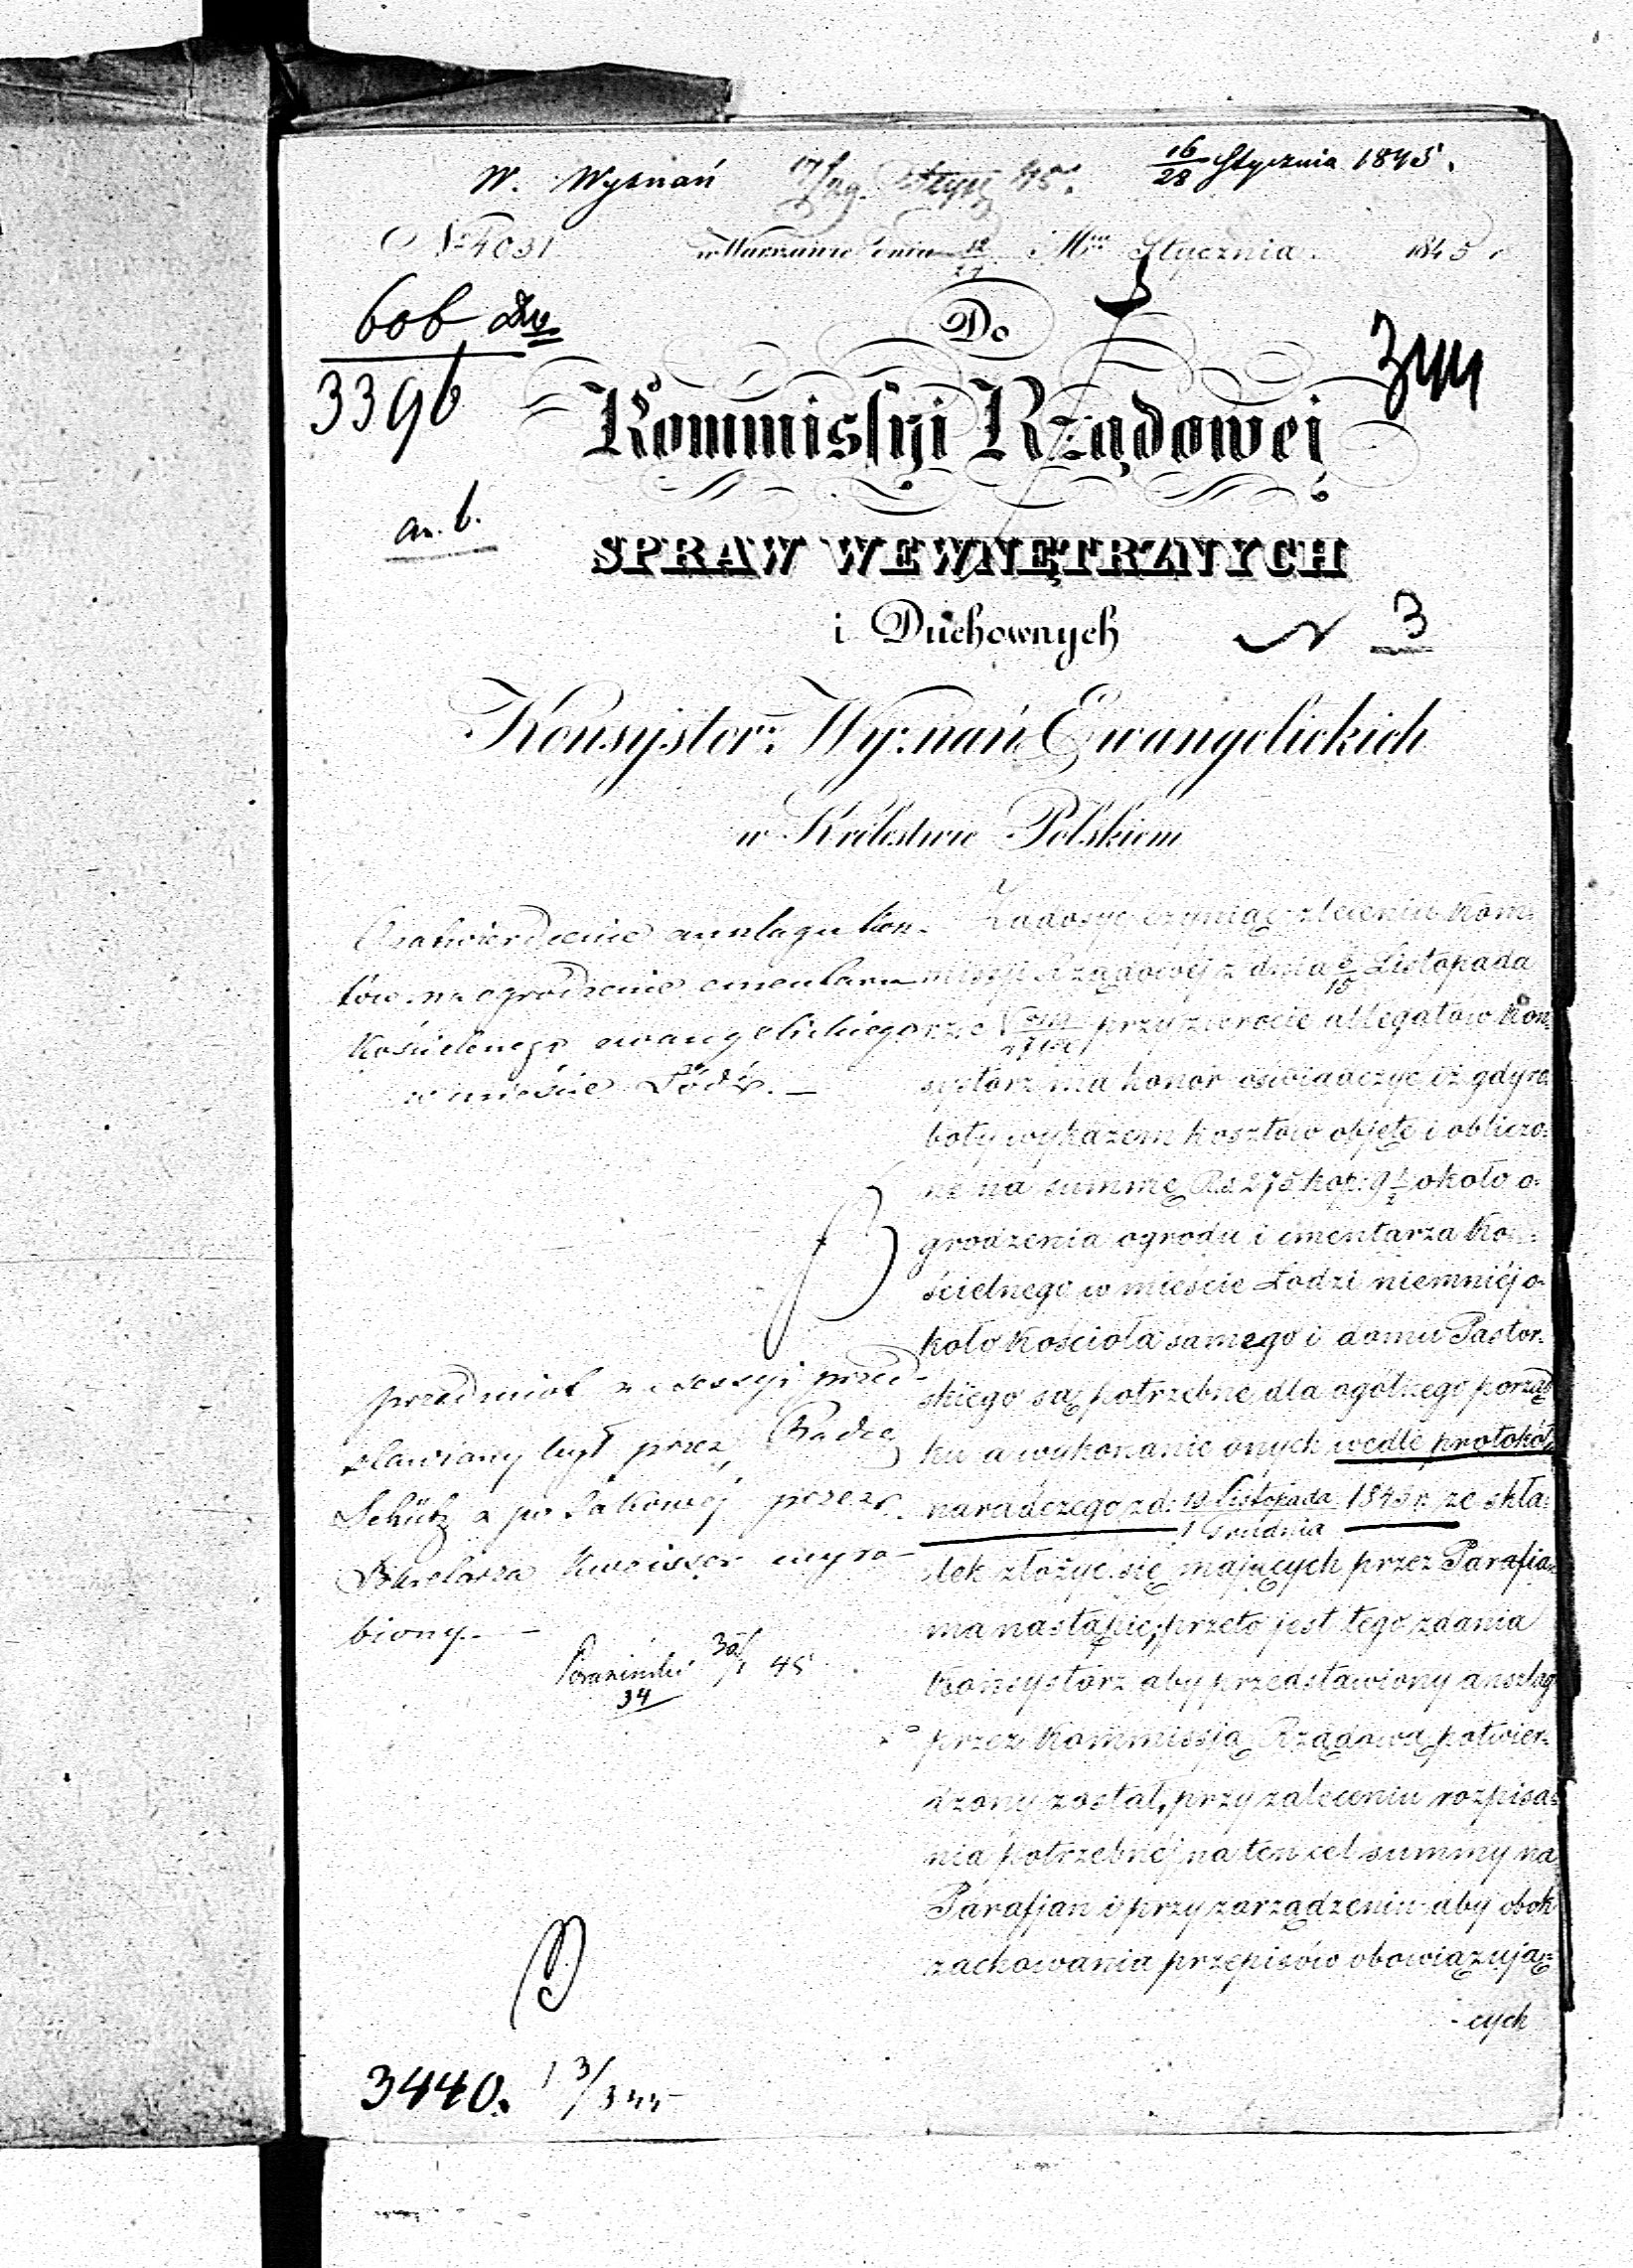 W. Wyznań
16/28 Stycznia 1845.
No 4031 w Warszawie dnia M Stycznia 1845 r
606
3396
Do
Kommissyi Rządowej
an. 6.
SPRAW WEWNĘTRZNYCH
i Duchownych
3
Konsystorz Wyznań Ewangelickich
w Królestwie Polskiem
O zatwierdzenie anszlagu kosz-
tów na ogrodzenie cmentarza
kościelnego ewangelickiego
w mieście Łódź. —
Zadosyć czyniąc zleceniu Kom-
missyi Rządowej z dnia 3/15 Listopada
przy zwrocie allegatów Kon-
systorz ma honor oświadczyć iż gdy ro-
boty wykazem kosztów objęte i obliczo-
ne na summę Rs 275 kop: 9 1/2 około o-
grodzenia ogrodu i cmentarza Ko-
ścielnego w mieście Łodzi niemniéj o-
koło Kościoła samego i domu Pastor-
skiego są potrzebne dla ogólnego porząd-
ku a wykonanie onych wedle protokół.
naradczego z d: 19 Listopada / 1 Grudnia 1843 r. ze skła-
dek złożyć się mających przez Parafian
ma nastąpić, przeto jest tego zdania
Konsystorz aby przedstawiony anszlag
przez Kommissją Rządową potwier-
dzony został, przy zaleceniu rozpisa-
nia potrzebnéj na ten cel summy na
Parafjan i przy zarządzeniu aby obok
zachowania przepisów obowiązują-
-cych
przedmiot na sessyi przed-
stawiony był przez Radcę
Schütz a po przez
Sekretarza wyro-
biony. —
30/1 45
34
3440.